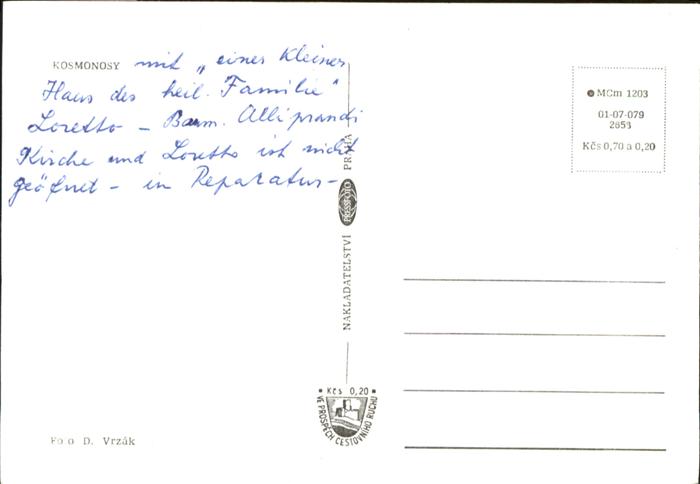 KOSMONOSY mit „eines kleines
Haus des heil. Familie“
Loretto – Baum. Alliprandi
Kirche und Loretto ist nicht
geöfnet – in Reparatur –
MCm 1203
01-07-079
2853
Kčs 0,70 a 0,20
NAKLADATELSTVÍ PRESSFOTO PRAHA
Kčs 0,20
VE PROSPĚCH CESTOVNÍHO RUCHU
Fo o D. Vrzák